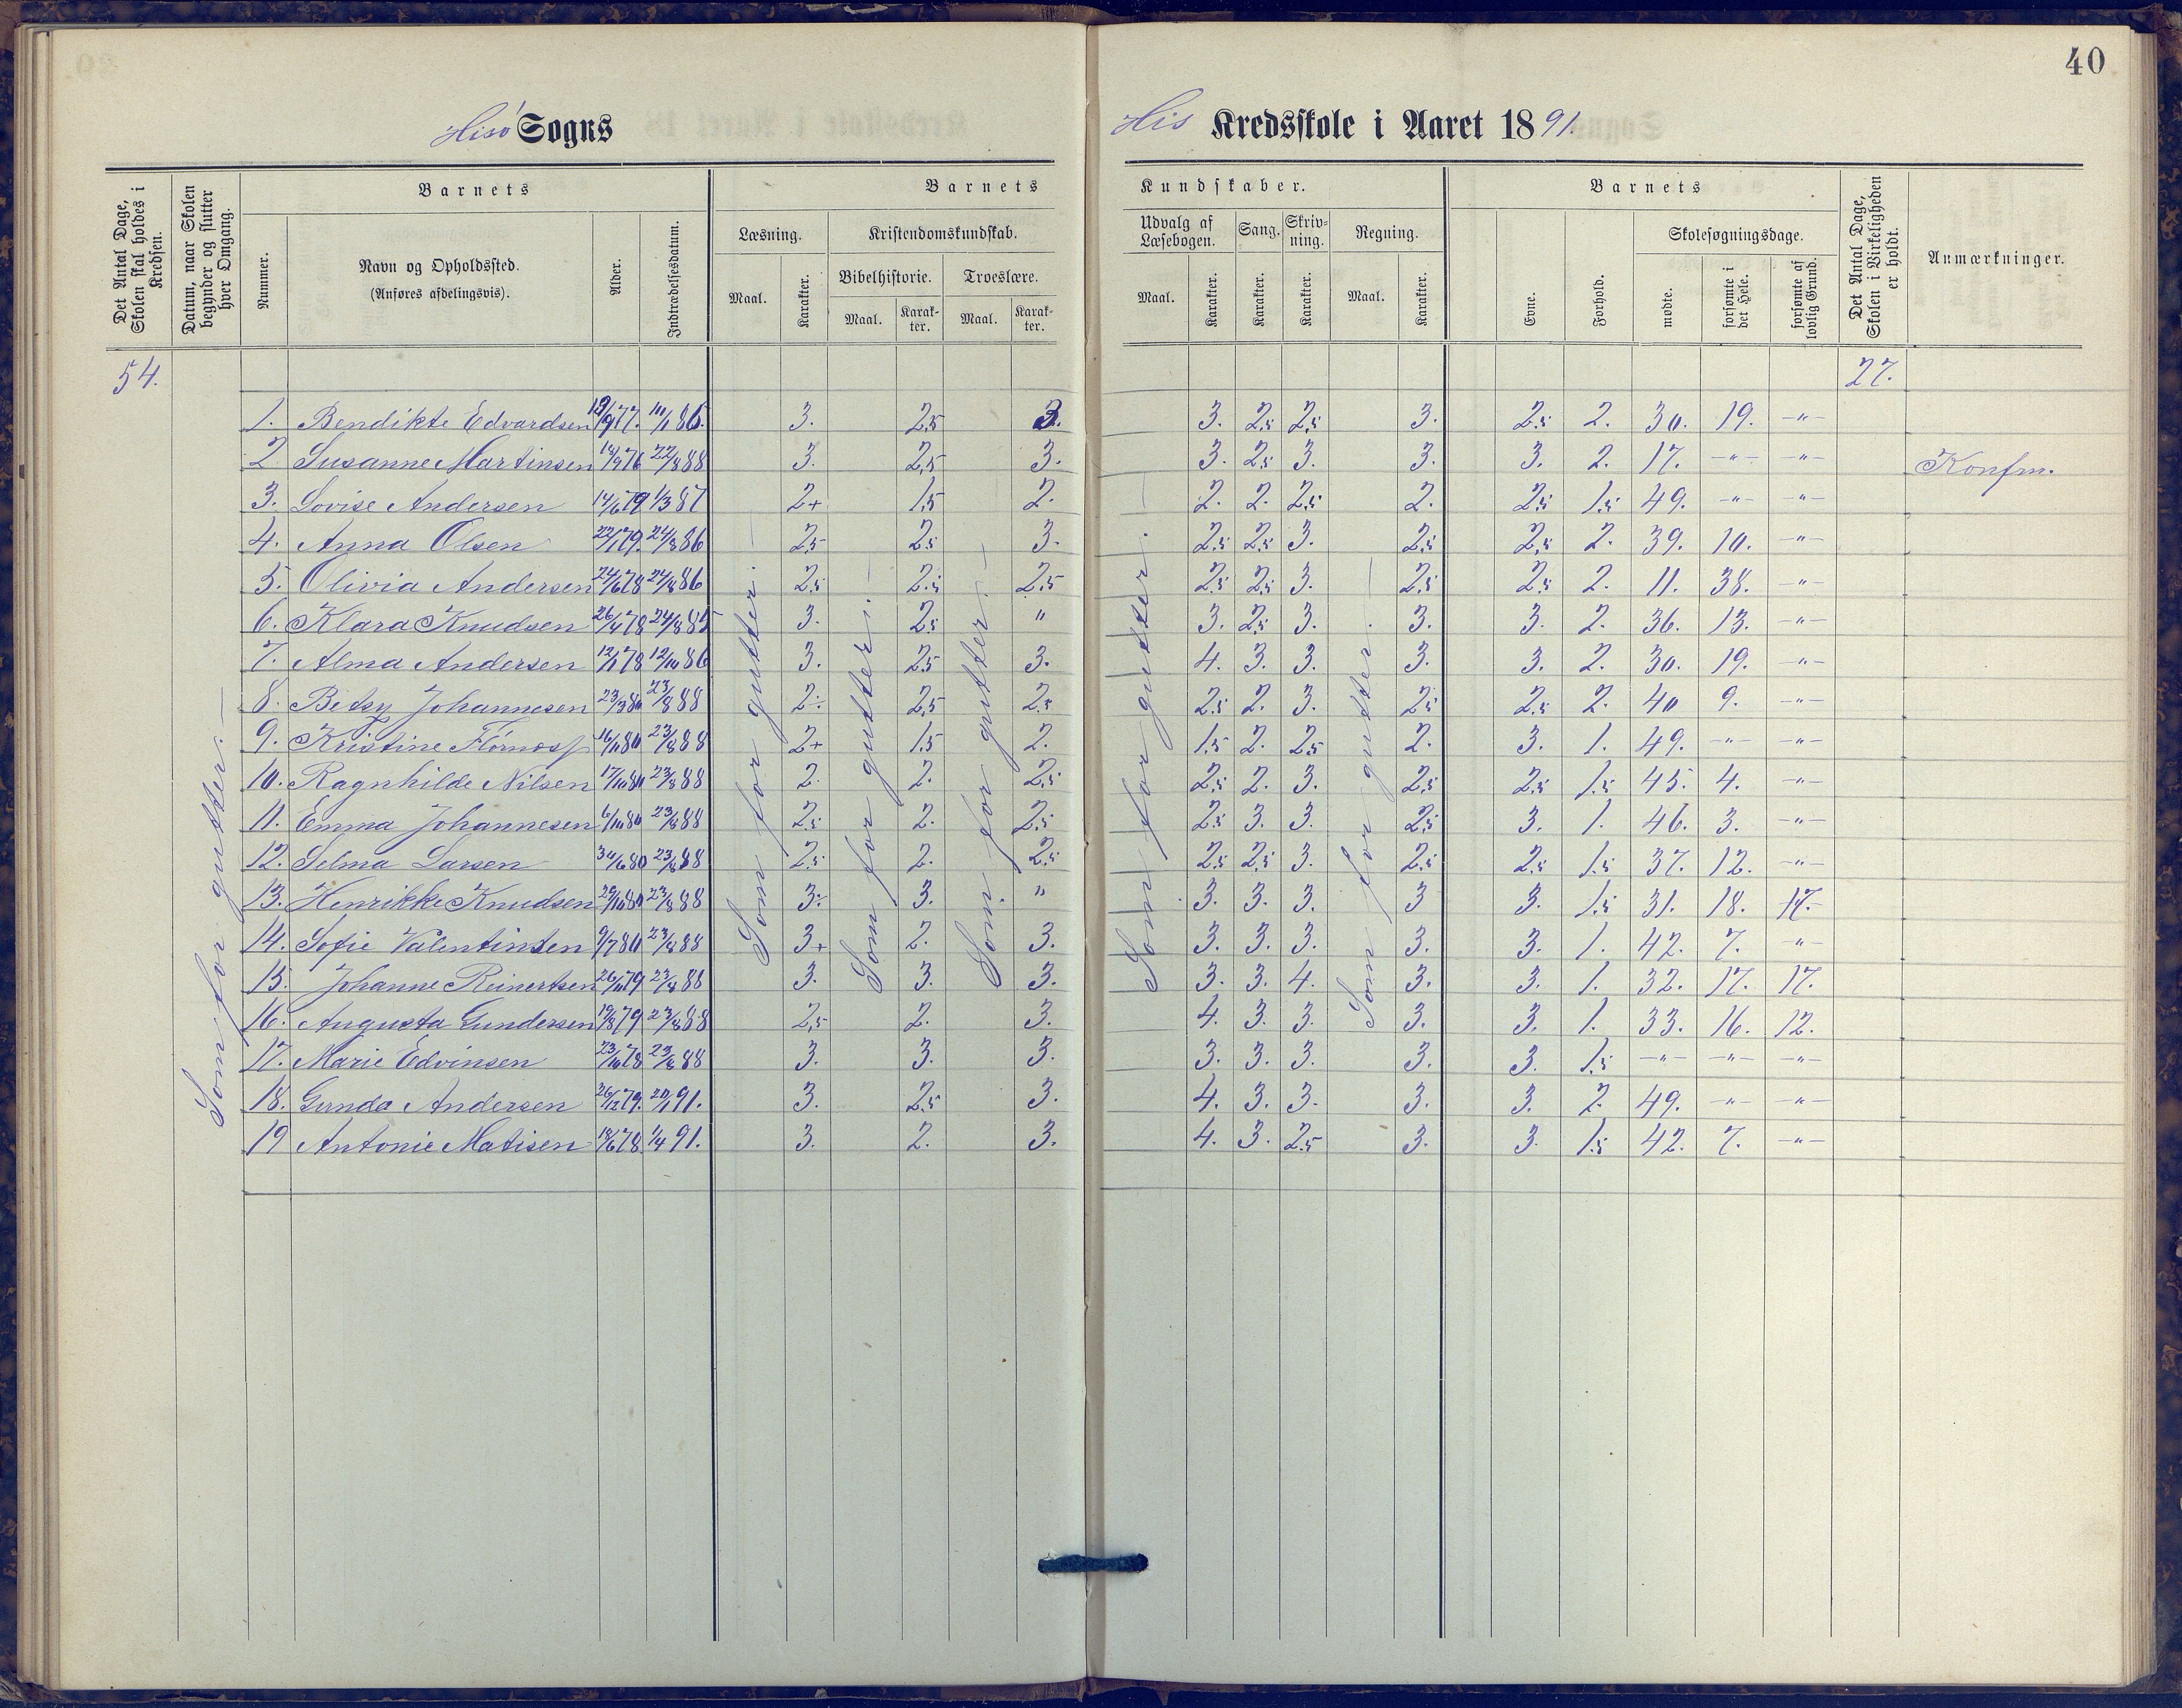 40
Hisø Sogns
His Kredsskole i Aaret 1891.
Det Antal Dage, Skolen skal holdes i Kredsen.
Datum, naar Skolen begynder og slutter hver Omgang.
Barnets
Nummer.
Navn og Opholdssted.
(Anføres afdelingsvis).
Alder.
Indtrædelsesdatum.
Barnets Kundskaber.
Læsning.
Maal. Karakter.
Kristendomskundskab.
Bibelhistorie. Troeslære.
Maal. Karakter. Maal. Karakter.
Udvalg af Læsebogen. Sang. Skrivning. Regning.
Maal. Karakter. Karakter. Karakter. Maal. Karakter.
Barnets
Evne. Forhold.
Skolesøgningsdage.
mødte. forsømte i det Hele. forsømte af lovlig Grund.
Det Antal Dage, Skolen i Virkeligheden er holdt.
Anmærkninger.
54. 27.
Som for gutter.—
Som for gutter.—
Som for gutter.—
Som for gutter.—
Som for gutter.—
Som for gutter.—
1. Bendikte Edvardsen 3. 2,5 3. 3. 2,5 2,5 3. 2,5 2. 30. 19. -"-
2 Susanne Martinsen 22/8 88 3. 2,5 3. 3. 2,5 3. 3. 3. 2. 17. -"- -"- Konfm.
3. Lovise Andersen 14/6 79 1/3 87 2+ 1,5 2. 2. 2. 2,5 2. 2,5 1,5 49. -"- -"-
4. Anna Olsen 22/1 79. 24/8 86 2,5 2,5 3. 2,5 2,5 3. 2,5 2,5 2. 39. 10. -"-
5. Olivia Andersen 24/6 78 24/8 86 2,5 2,5 2,5 2,5 2,5 3. 2,5 2,5 2. 11. 38. -"-
6. Klara Knudsen 26/4 78 24/8 85 3. 2,5 " 3. 2,5 3. 3. 3. 2. 36. 13. -"-
7. Alma Andersen 12/1 78 12/10 86 3. 2,5 3. 4. 3. 3. 3. 3. 2. 30. 19. -"-
8. Betsy Johannesen 23/3 80 23/8 88 2÷ 2,5 2,5 2,5 2. 3. 2,5 2,5 2. 40 9. -"-
9. Kristine 23/8 88 2+ 1,5 2. 1,5 2. 2,5 2. 3. 1. 49. -"- -"-
10. Ragnhilde Nilsen 17/10 80 23/8 88 2. 2. 2,5 2,5 2. 3. 2,5 2,5 1,5 45. 4. -"-
11. Emma Johannesen 6/10 80 23/8 88 2,5 2. 2,5 2,5 3. 3. 2,5 3. 1. 46. 3. -"-
12. Selma Larsen 30/6 80 23/8 88 2,5 2. 2,5 2,5 2,5 3. 2,5 2,5 1,5 37. 12. -"-
13. Henrikke Knudsen 29/10 80 23/8 88 3÷ 3. " 3. 3. 3. 3 3. 1,5 31. 18. 17.
14. Sofie Valentinsen 9/7 80 23/8 88 3+ 2. 3. 3. 3. 3. 3. 3. 1. 42. 7. -"-
15. Johanne Reinertsen 26/11 79 23/8 88 3. 3. 3. 3. 3. 4. 3. 3. 1. 32. 17. 17.
16. Augusta Gundersen 19/8 79 23/8 88 2,5 2. 3. 4. 3. 3. 3. 3. 1. 33. 16. 12.
17. Marie Edvinsen 23/10 78 23/8 88 3. 3. 3. 3. 3. 3. 3. 3 1,5 -"- -"- -"-
18. Gunda Andersen 26/12 79. 20/1 91. 3. 2,5 3. 4. 3. 3. 3. 3. 2. 49. -"- -"-
19 Antonie Matisen 18/6 78 1/4 91. 3. 2. 3. 4. 3. 2,5 3. 3. 1,5 42. 7. -"-